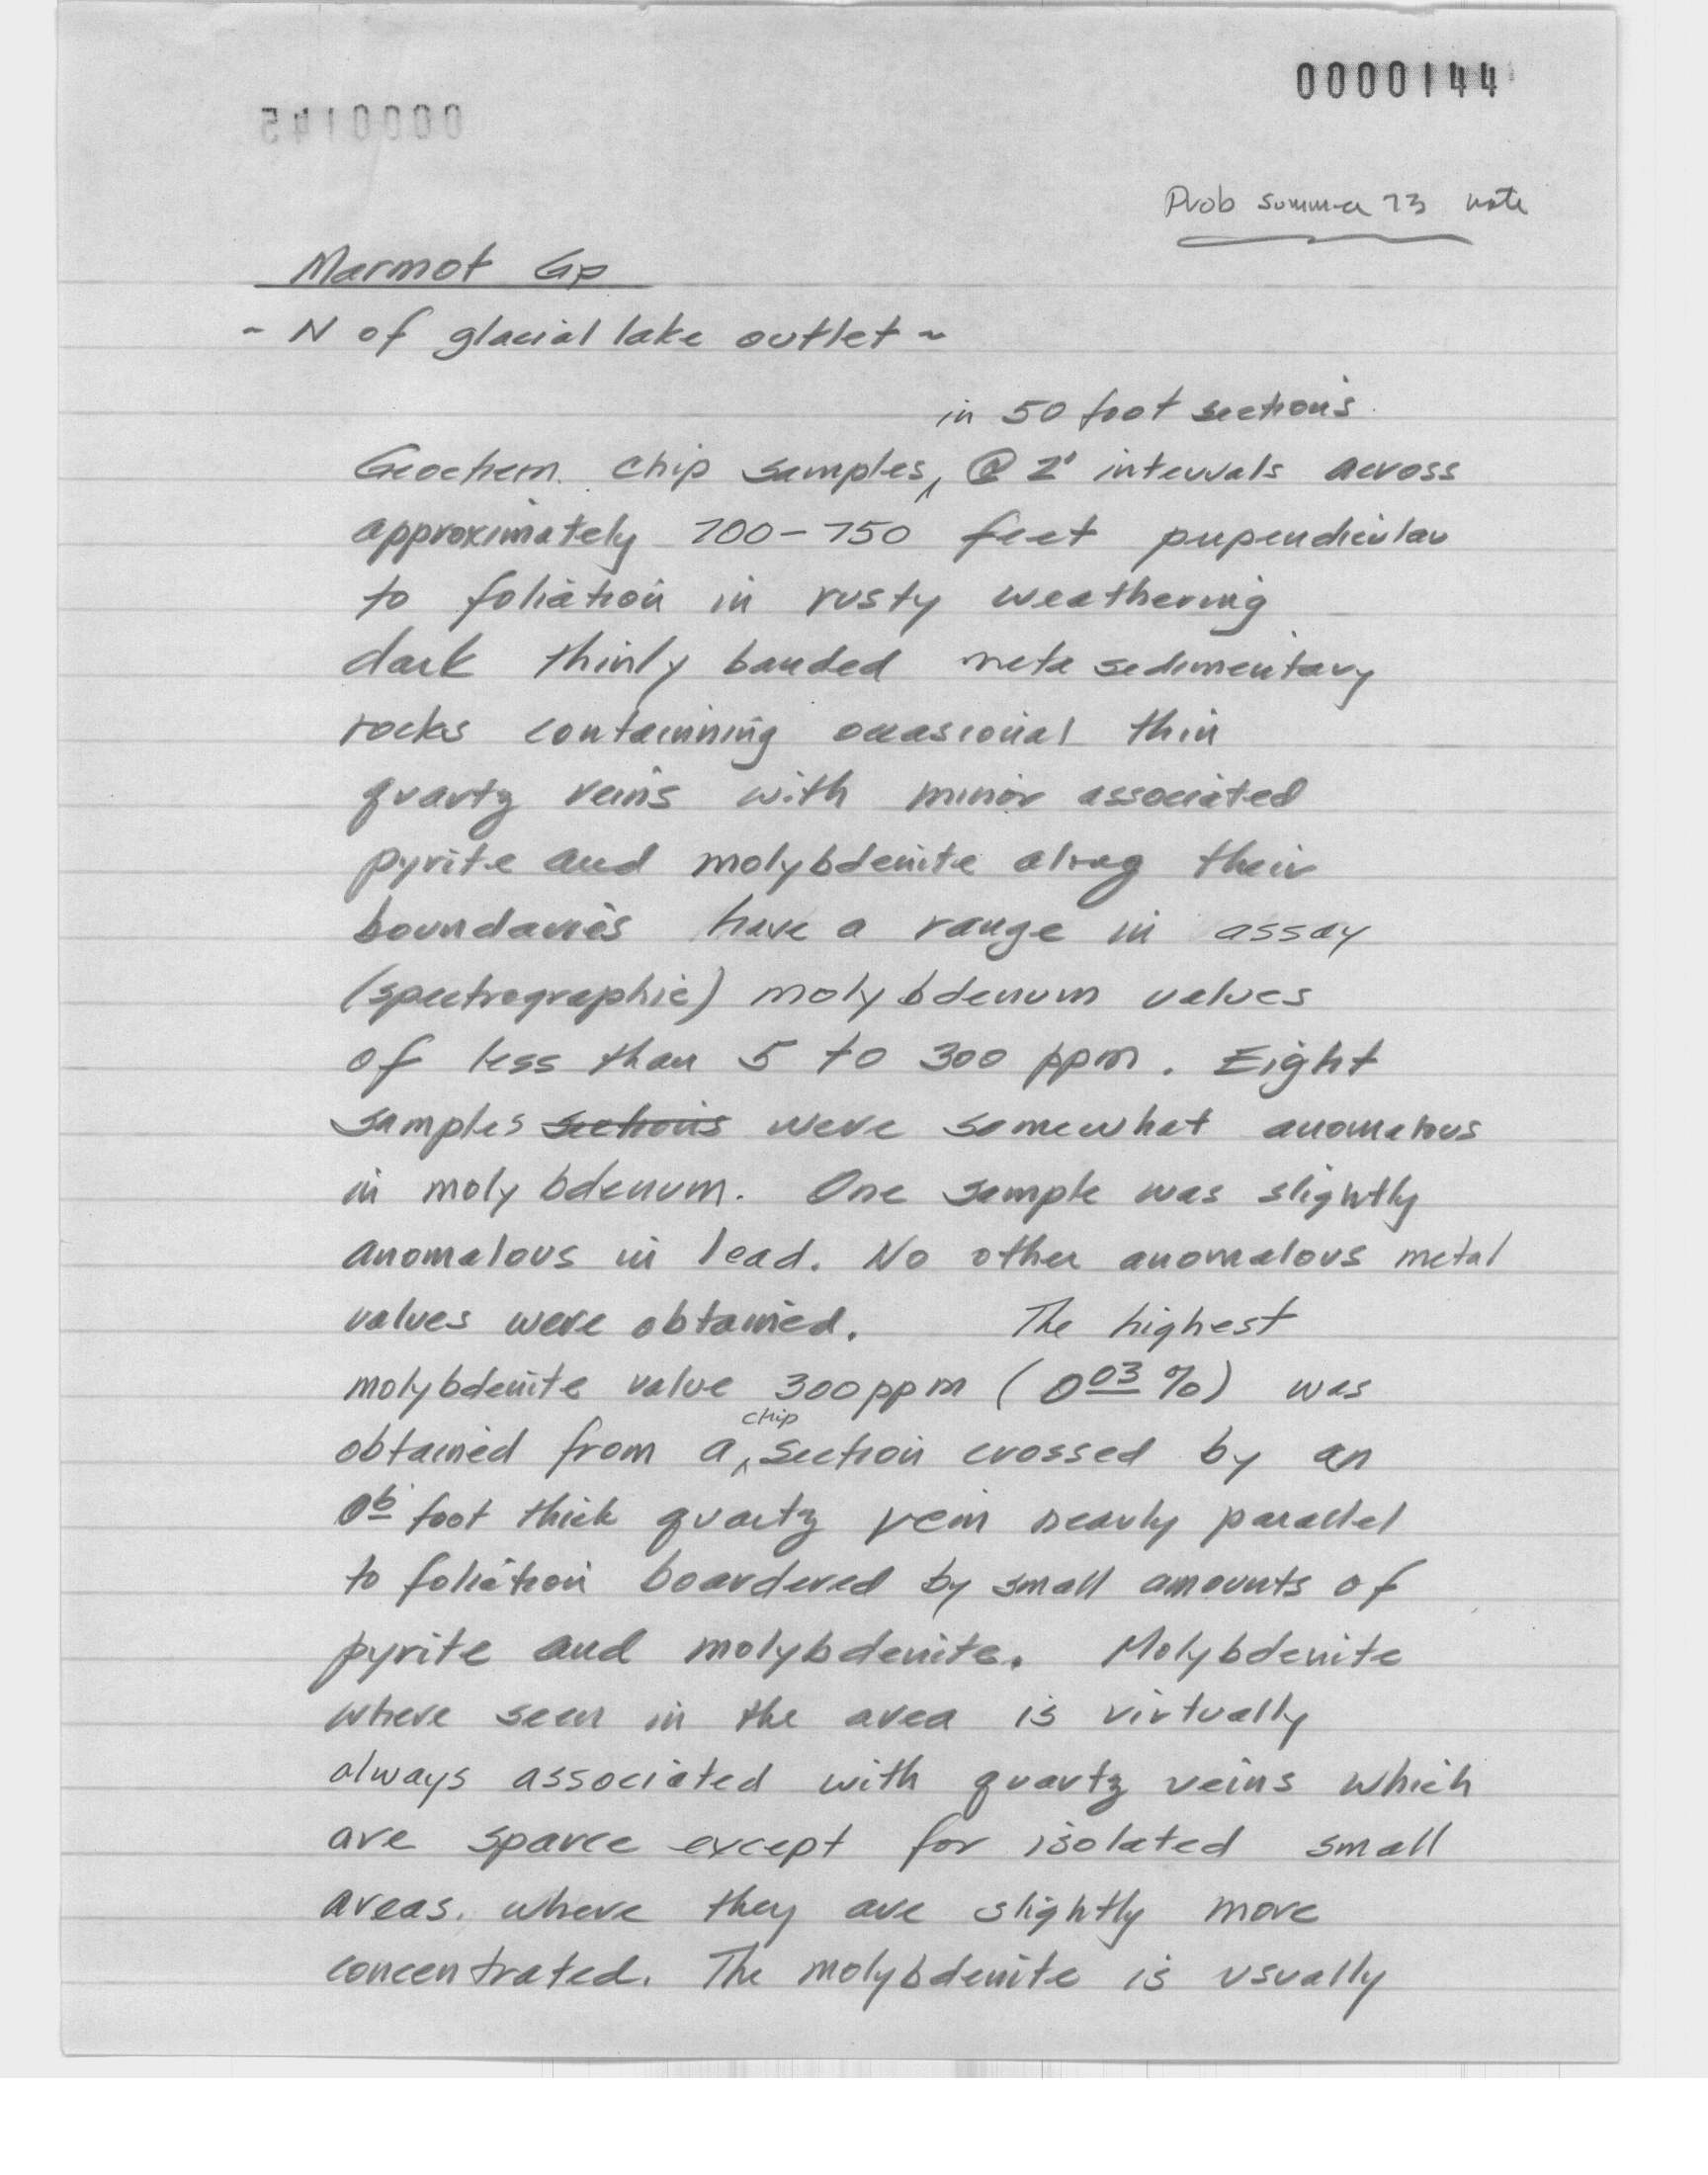 0000144
0000145
Prob summer 73 note
Marmot Gp
- N of glacial lake outlet ~
in 50 foot sections
Geochem. chip samples, @ 2' intervals across
approximately 700-750 feet perpendicular
to foliation in rusty weathering
dark thinly banded meta sedimentary
rocks containing occasional thin
quartz veins with minor associated
pyrite and molybdenite along their
boundaries have a range in assay
(spectrographic) molybdenum values
of less than 5 to 300 ppm. Eight
samples sections were somewhat anomalous
in molybdenum. One sample was slightly
anomalous in lead. No other anomalous metal
values were obtained. The highest
molybdenite value 300 ppm (0 03 %) was
chip
obtained from a section crossed by an
06 foot thick quartz vein nearly parallel
to foliation boardered by small amounts of
pyrite and molybdenite. Molybdenite
where seen in the area is virtually
always associated with quartz veins which
are sparce except for isolated small
areas. where they are slightly more
concentrated. The molybdenite is usually